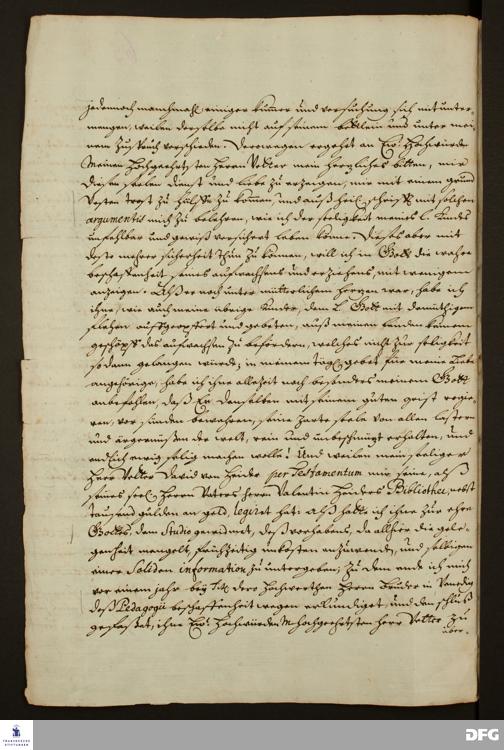 jedennoch manchmahl einiger kummer und versuchung sich mit unter-
mengen, weilen derselbe nicht auf seinem bettlein und unter mei-
nem zuspruch verschieden. Derowegen ergehet an Ew. Hochwürden
Meinen Hochgeehrtesten Herrn Vetter mein hertzliches bitten, mir
diesen seelen dienst und liebe zu erzeigen, mir mit einem grund
vesten trost zu hülffe zu kommen, und auß heil. schrifft mit solchen
argumentis mich zu belehren, wie ich der seeligkeit meines l. Kinds
unfehlbar und gewiß versichert leben könne. Dieses aber mit
desto mehrer sicherheit thun zu können, will ich in Gott die wahre
beschaffenheit seines aufwachsens und erziehens, mit wenigem
anzeigen. Als er noch unter mütterlichem hertzen war, habe ich
ihne, wie auch meine übrige kinder, dem l. Gott mit demüthigem
flehen aufgeopfert und gebeten, auß meinen lenden keinem
geschöpff das aufwachsen zu befördern, welches nicht zur seligkeit
sodann gelangen würde; in meinem tägl. gebet für meine liebe
angehörige, habe ich ihne allezeit noch besonders meinem Gott
anbefohlen, daß Er denselben mit seinem guten geist regie-
ren, vor sünden bewahren, seine zarte seele von allen lastern
und ärgernüßen der welt, rein und unbefleckt erhalten, und
endlich ewig selig machen wolle! Und weilen mein seeliger
Herr Vetter David von Haider per Testamentum mir seine als
seines seel. Herrn Vaters Herrn Valentin Heiders Bibliothec, nebst
tausend gulden an geld, legiret hat: Als hatte ich ihne zur ehre
Gottes dem studio gewidmet, deß vorhabens, da allhier die gele-
genheit mangelt, frühzeitig unkosten anzuwenden, und selbigen
einer Soliden information zu untergeben; zu dem ende ich mich
vor einem jahr bey Tit. dero Hochwerthen Herrn Bruder in Venedig
deß Pedagogii beschaffenheit wegen erkundiget, und den schluß
gefasset, ihne Ew. Hochwürden M. Hochgeehrtesten Herr Vetter zu